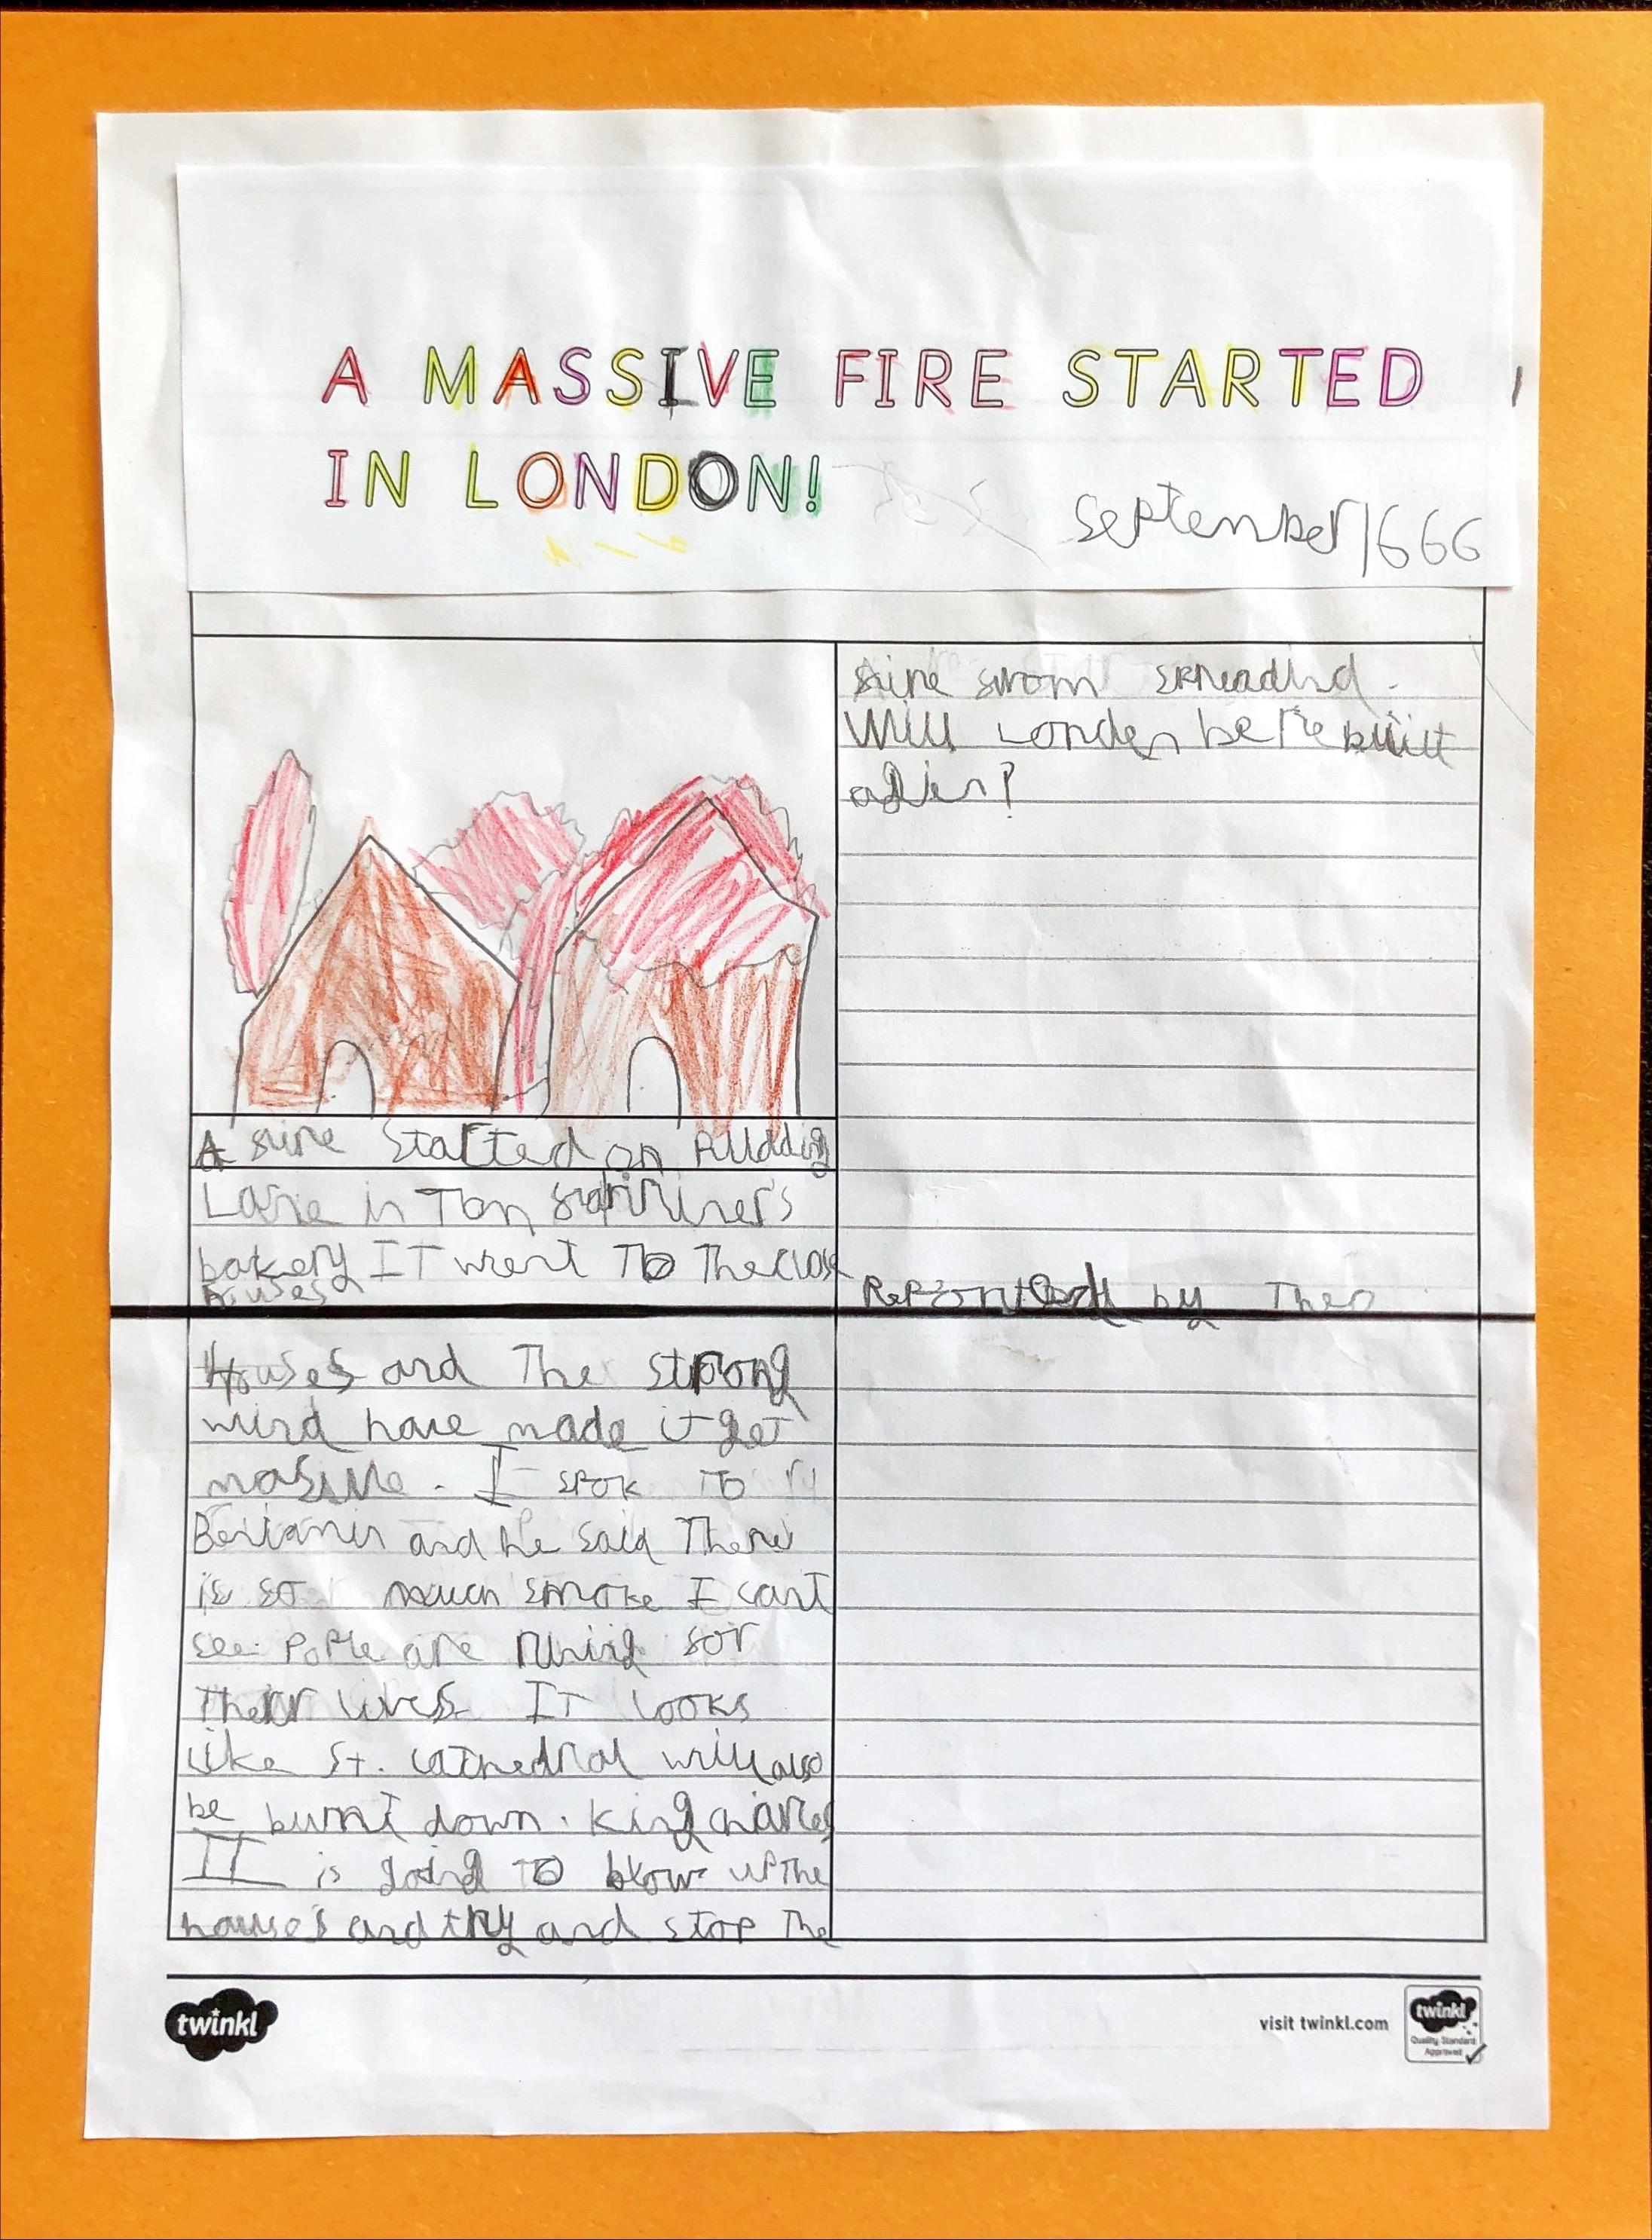 A MASSIVE FIRE STARTED
IN LONDON!
September 1666
A fire Started on Pudding
Lane in Tom farriner's
bakery IT went To The close
houses
Houses and The strong
wind have made it get
masive. I spok to
Benjamin and he said There
is so much smoke I cant
see. Pople are runing for
Their lives IT looks
like St. cathedral will also
be burnt down. King charles
II is going to blow up the
houses and try and stop The
fire from spreading.
Will London be rebuilt
after?
Reported by Theo
twinkl
visit twinkl.com
twinkl
Quality Standard
Approved